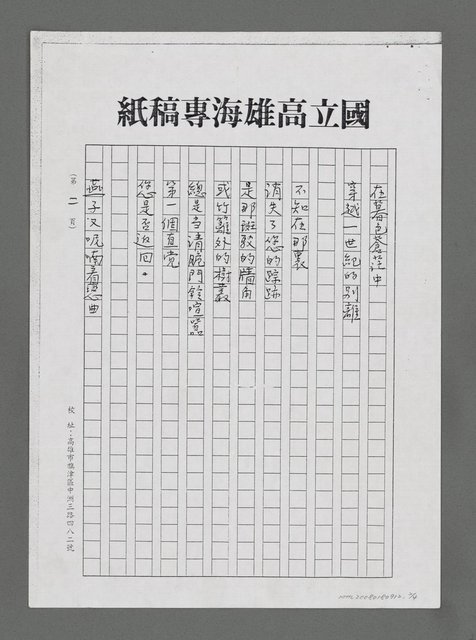 國立高雄海專稿紙
在暮色蒼茫中
穿越一世紀的別離
不知在那裏
消失了您的踪跡
是那斑駁的牆角
或竹籬外的樹叢
總是当清脆門鈴喧囂
第一個直覺
您是否返回。
燕子又呢喃着戀曲
(第二頁)
校址：高雄市旗津區中洲三路四八二號